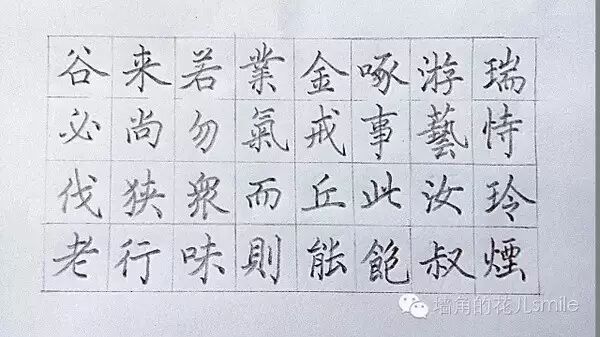 谷来若業金啄游瑞
必尚勿氣戒事藝恃
伐狭衆而丘此汝玲
老行味則能飽叔煙
墙角的花儿smile